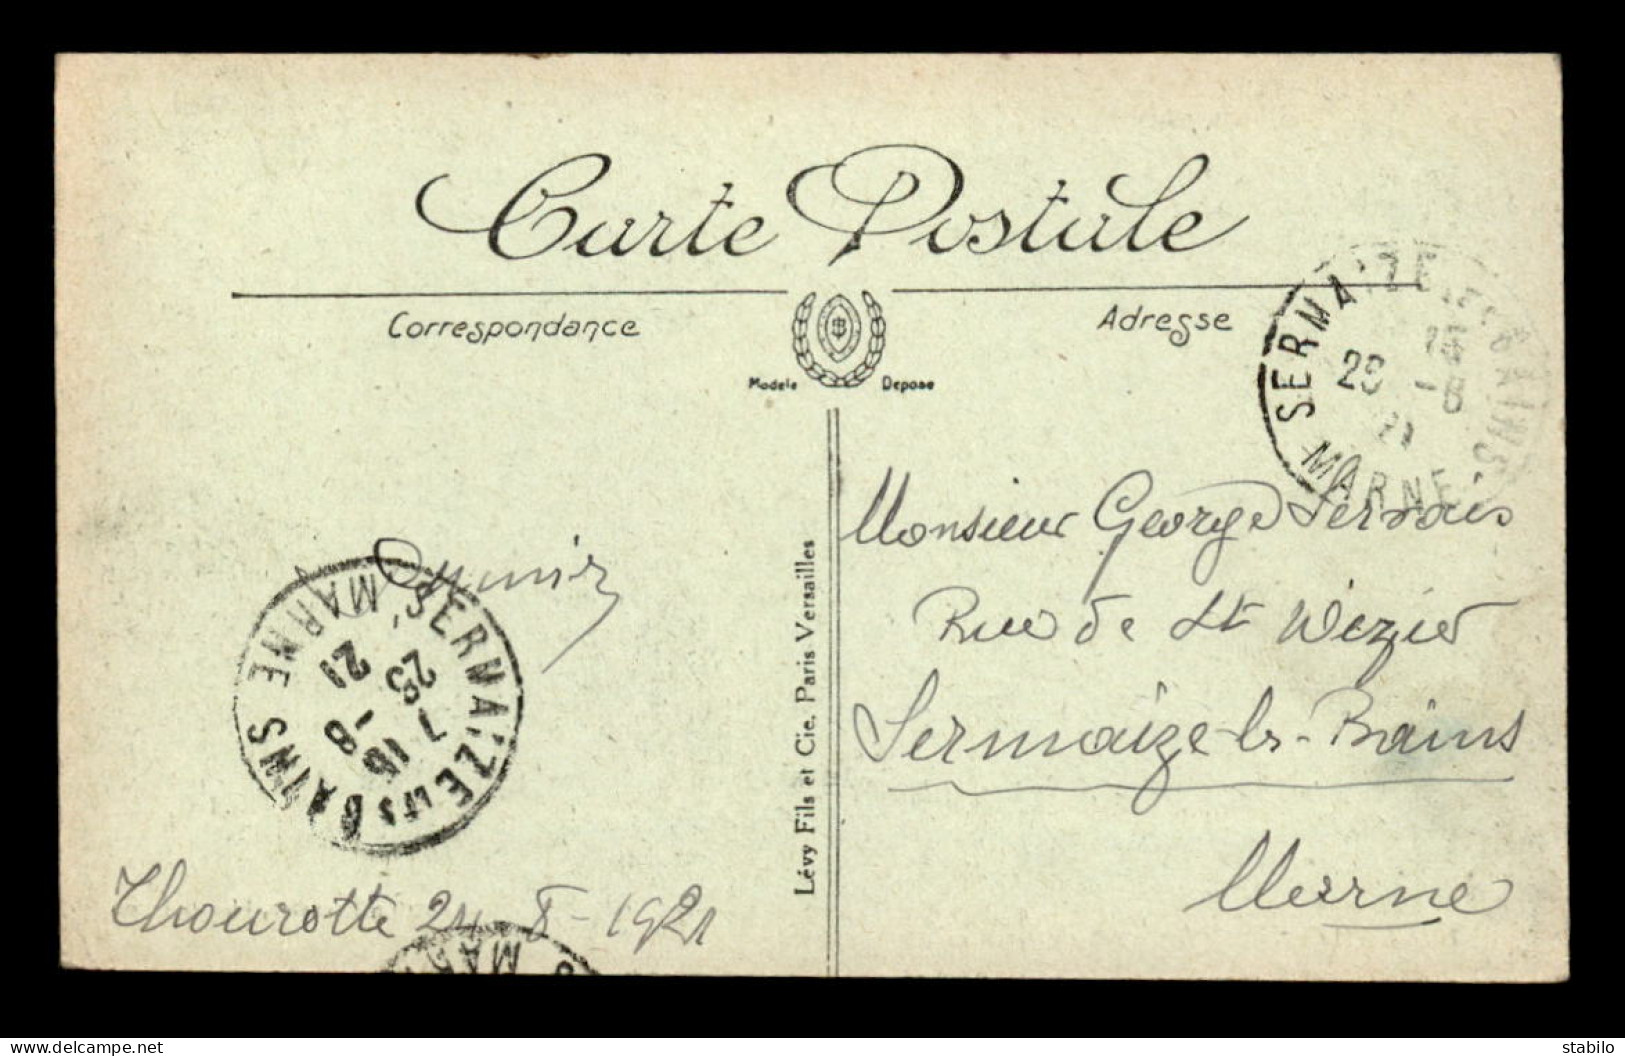 Carte Postale
Correspondance
Adresse
Modele Depose
SERMAIZE-LES-BAINS
15
23 -8
21
MARNE
Monsieur George Servais
Rue de St
Sermaize-les-Bains
Marne
Lévy Fils et Cie. Paris Versailles
SERMAIZE LES BAINS
MARNE
15
-8
21
Thourotte 24-8-1921
MAR
www.delcampe.net
stabilo